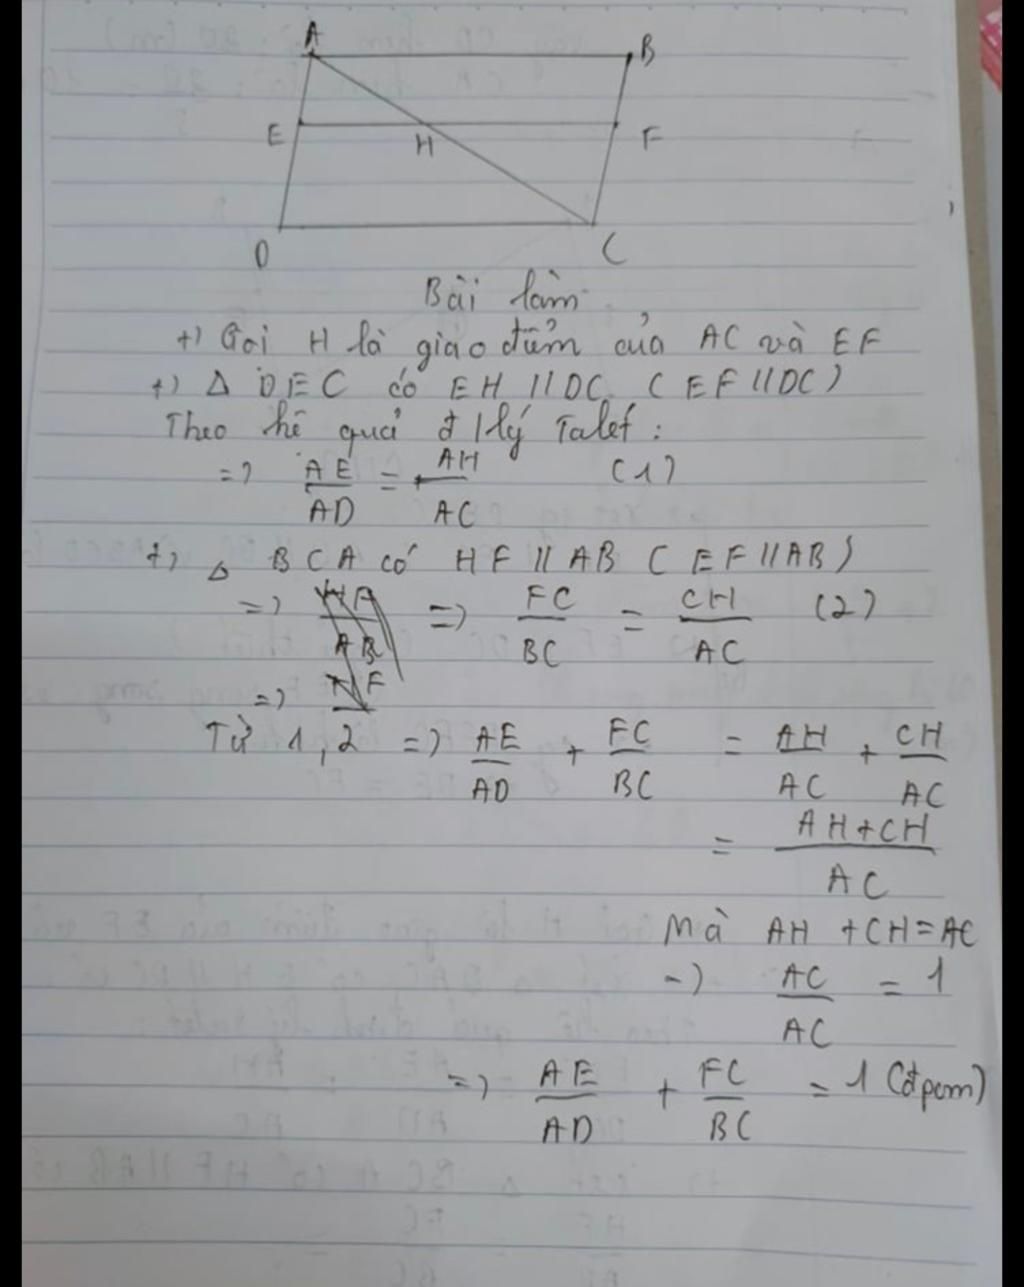 A B
E H F
D C
Bài làm
+) Gọi H là giao điểm của AC và EF
+) Δ DEC có EH // DC ( EF // DC )
Theo hê quả đ/lý Talet :
=> AE/AD = AH/AC (1)
+) Δ BCA có HF // AB ( EF // AB )
=> => FC/BC = CH/AC (2)
=>
Từ 1, 2 => AE/AD + FC/BC = AH/AC + CH/AC
= AH+CH/AC
Mà AH + CH = AC
=> AC/AC = 1
=> AE/AD + FC/BC = 1 (đpcm)